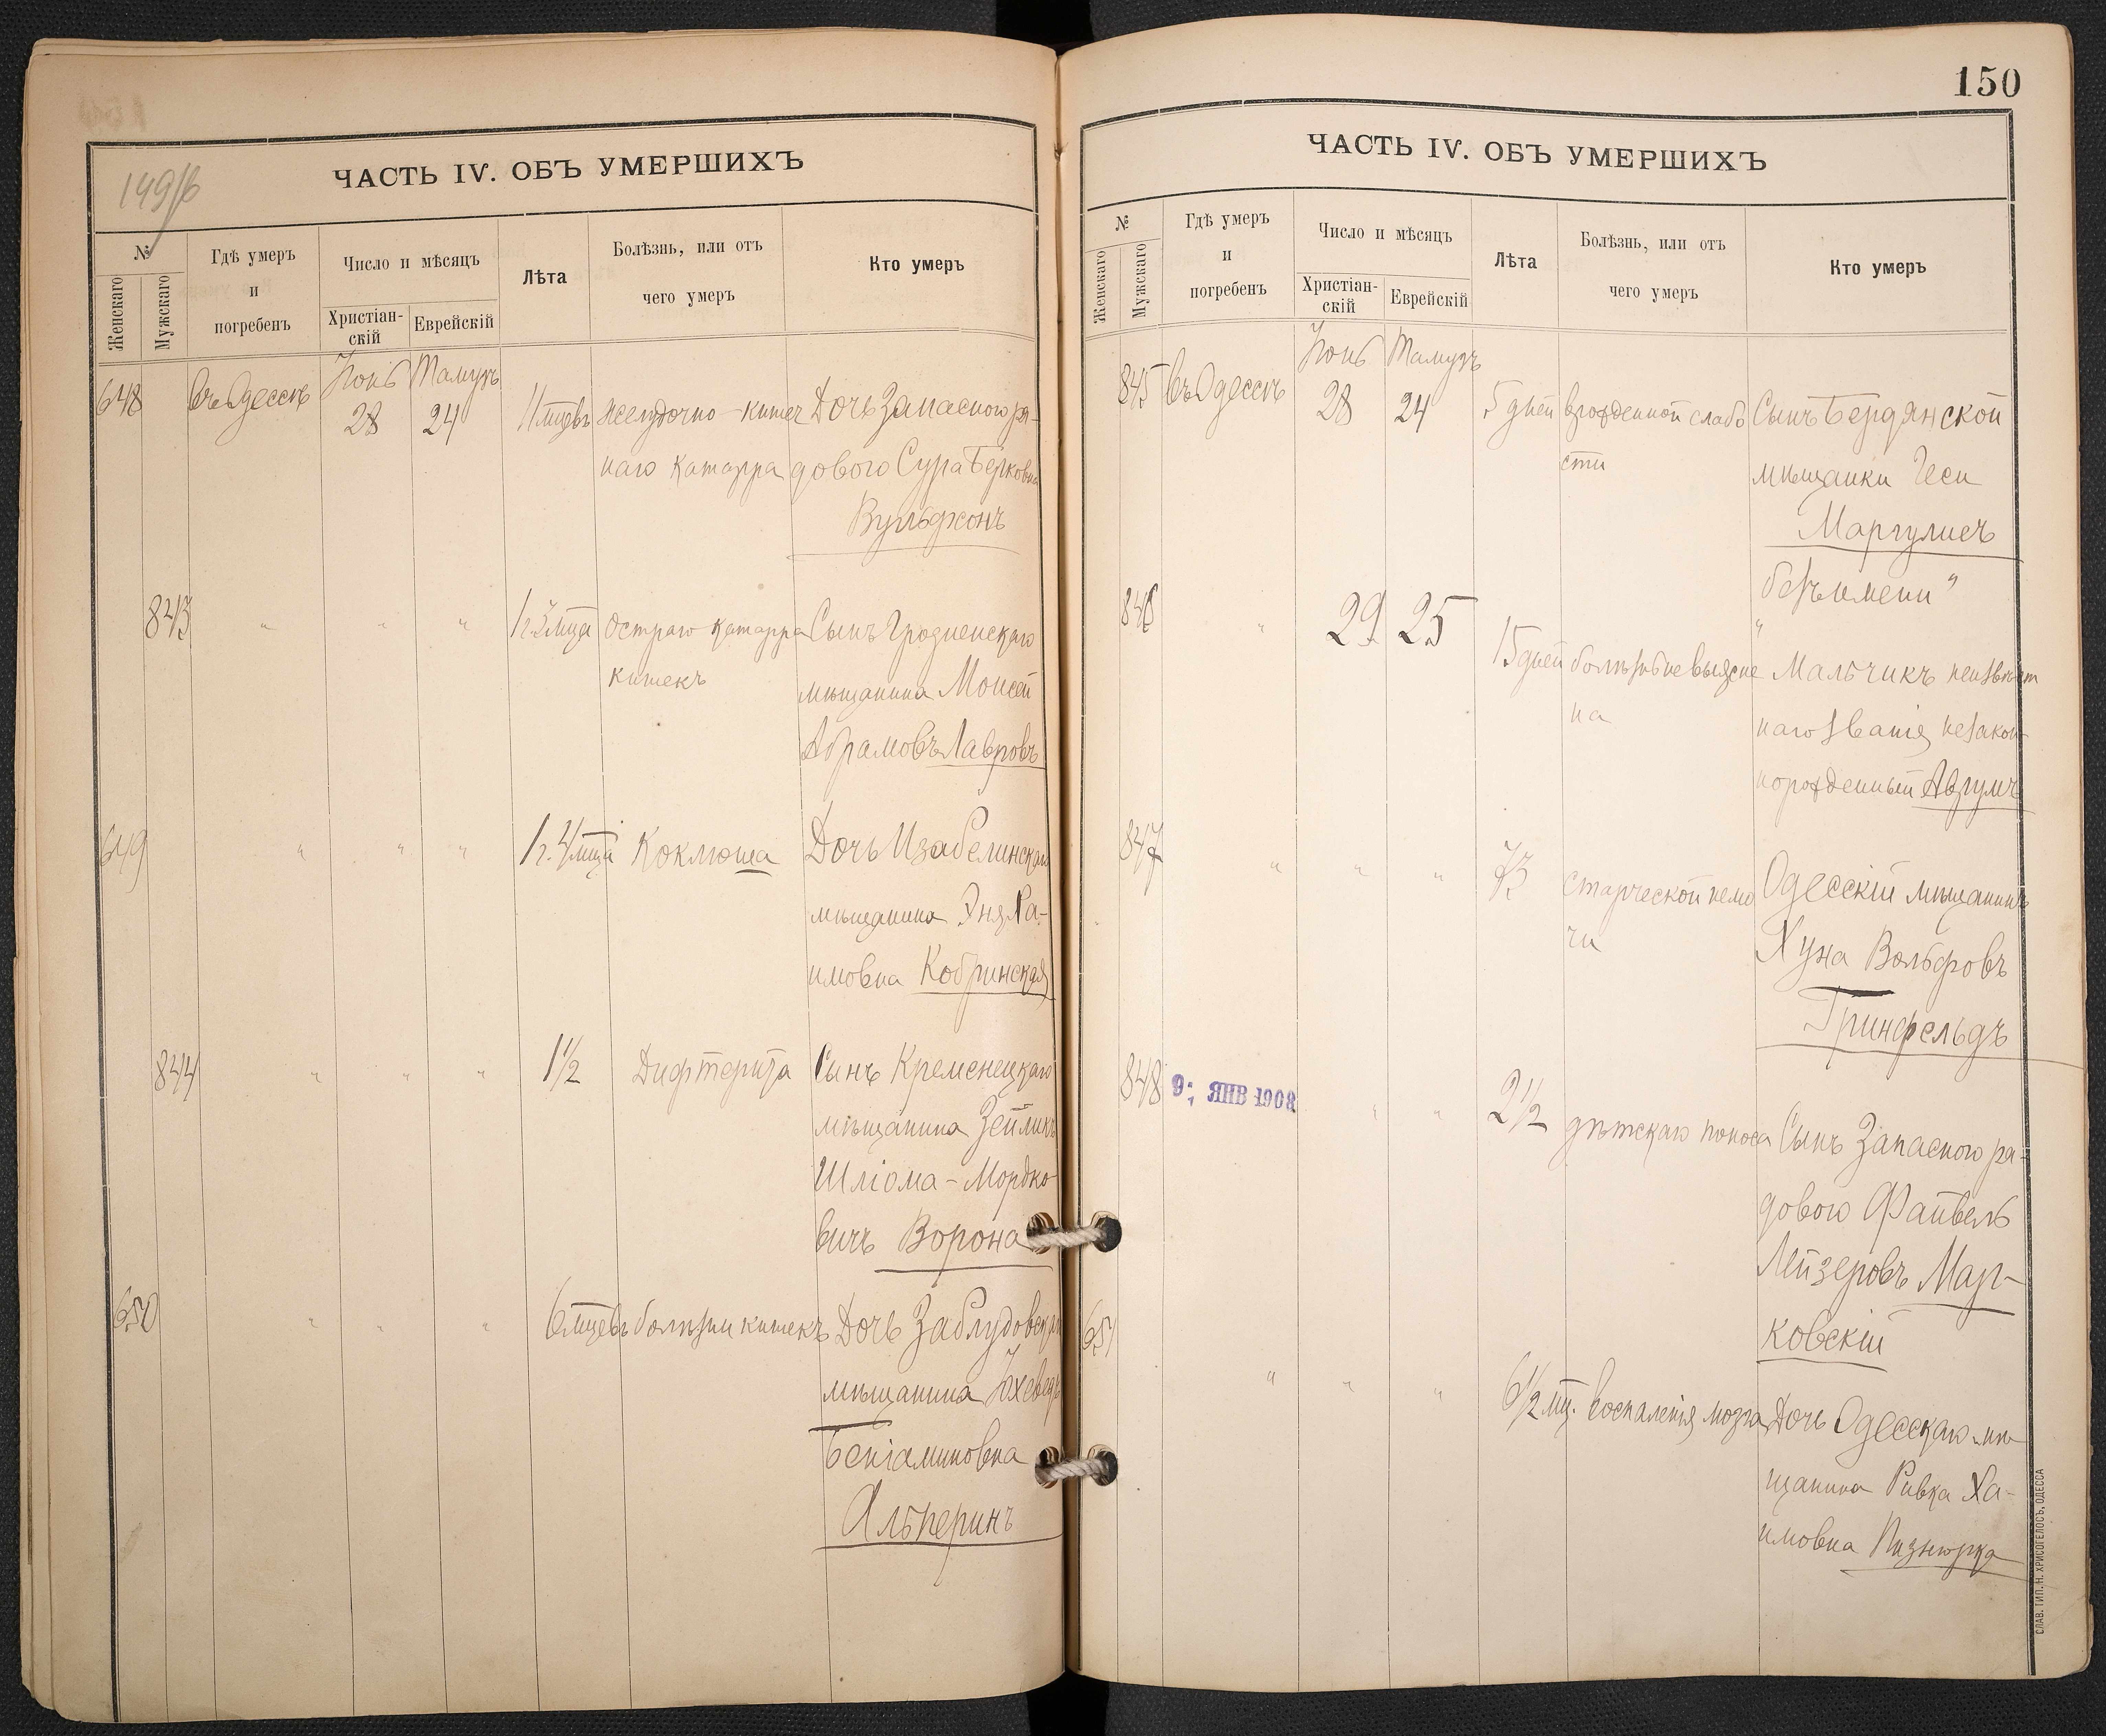 149/б
ЧАСТЬ IV. ОБЪ УМЕРШИХЪ
№
Женскаго
Мужскаго
Гдѣ умеръ
и
погребенъ
Число и мѣсяцъ
Христіан-
скій
Еврейскій
Лѣта
Болѣзнь, или отъ
чего умеръ
Кто умеръ
Іюнь Тамузъ
648 въ Одессѣ 28 24 11 мцевъ желудочно-кишеч Дочь Запасного ря-
наго катарра дового Сура Берковна
Вульфсонъ
843 " " " 1 г. 3 мца Остраго катарра Сынъ Гродненскаго
кишекъ мѣщанина Моисей
Абрамовъ Лавровъ
649 " " " 1 г. 4 мца Коклюша Дочь Изабелинскаго
мѣщанина Эня Ха-
имовна Кобринская
844 " " " 1½ Дифтерита Сынъ Кременецкаго
мѣщанина Зейликъ
Шліома-Мордко-
вичъ Ворона
650 " " " 6 мцевъ болѣзни кишекъ Дочь Заблудовскаго
мѣщанина Юхеведъ
Беніаминовна
Альперинъ
150
ЧАСТЬ IV. ОБЪ УМЕРШИХЪ
№
Женскаго
Мужскаго
Гдѣ умеръ
и
погребенъ
Число и мѣсяцъ
Христіан-
скій
Еврейскій
Лѣта
Болѣзнь, или отъ
чего умеръ
Кто умеръ
Іюнь Тамузъ
845 въ Одессѣ 28 24 5 дней врожденной слабо Сынъ Бердянской
сти мѣщанки Геси
Маргулисъ
"безъ имени"
846 " 29 25 15 дней болѣзнь не выясне Мальчикъ неизвѣст
на наго званія незакон-
норожденный Аврумъ
847 " " " 73 старческой немо Одесскій мѣщанинъ
чи Хуна Вольфовъ
Гринфельдъ
848 9 ЯНВ 1908 " " 2½ дѣтскаго поноса Сынъ Запасного ря-
дового Файвель
Лейзеровъ Мар-
ковскій
651 " " " 6½ мц. воспаленія мозга Дочь Одесскаго мѣ-
щанина Ривка Ха-
имовна
СЛАВ. ТИП. Н. ХРИСОГЕЛОСЪ, ОДЕССА